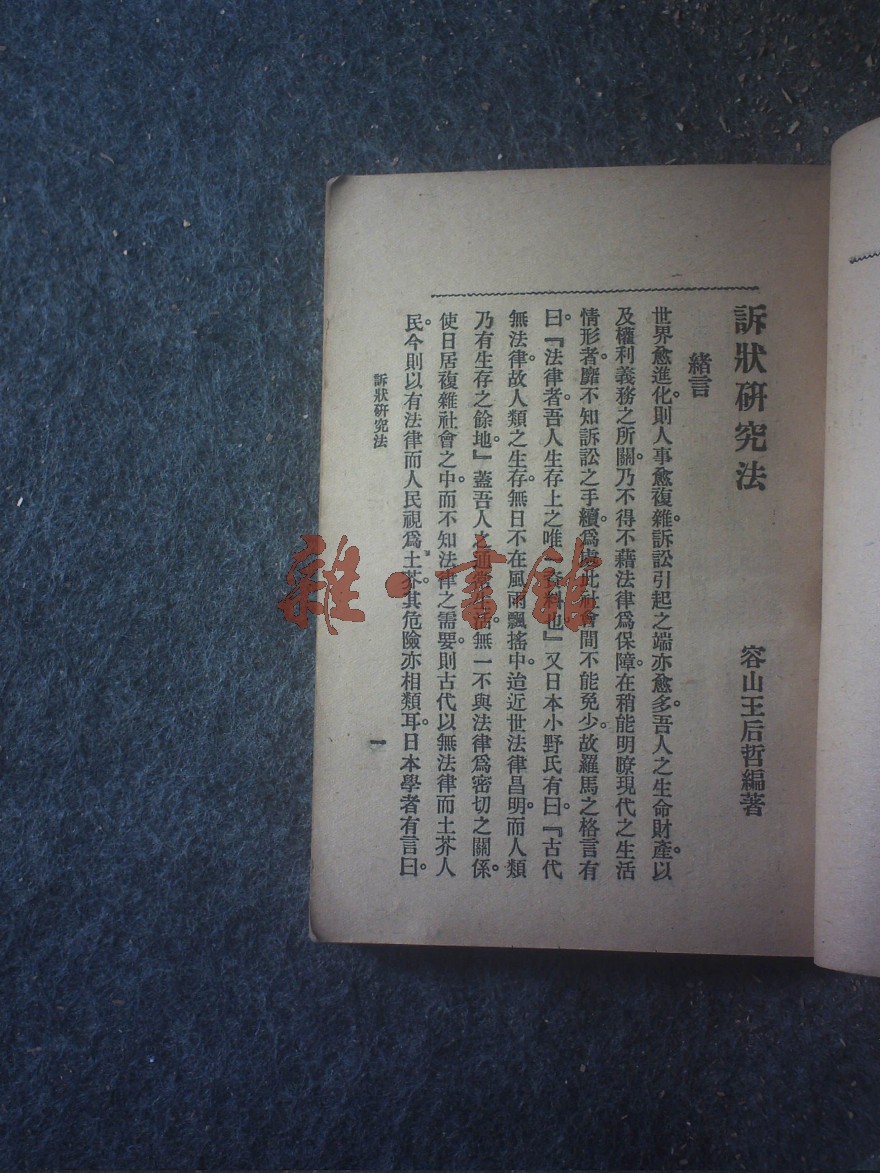 訴狀硏究法
容山王后哲編著
緒言
世界愈進化。則人事愈複雜。訴訟引起之端亦愈多。吾人之生命財產。以
及權利義務之所關。乃不得不藉法律爲保障。在稍能明瞭現代之生活
情形者。靡不知訴訟之手續。爲處此社會間不能免少。故羅馬之格言有
曰。『法律者。吾人生存上之唯一資料也』又日本小野氏有曰。『古代
無法律。故人類之生存。無日不在風雨飄搖中。迨近世法律昌明。而人類
乃有生存之餘地。』蓋吾人之通常生活。無一不與法律爲密切之關係。
使日居複雜社會之中。而不知法律之需要。則古代以無法律而土芥人
民。今則以有法律而人民視爲土芥。其危險亦相類耳。日本學者有言曰。
訴狀硏究法
一
雜·書館